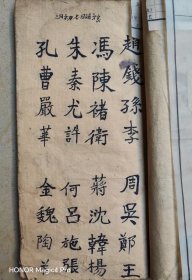 趙錢孫李　周吳鄭王
馮陳褚衛　蔣沈韓楊
朱秦尤許　何呂施張
孔曹嚴華　金魏陶
HONOR Magic6 Pro